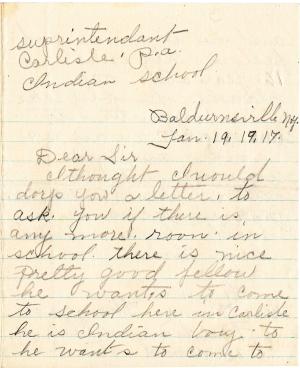 suprintendant
Carlisle, P.a.
Indian school
Baldurnsville N.y.
Jan. 19, 1917.
Dear Sir
I thought I would
dorp you a letter, to
ask you if there is
any more room in
school. there is nice
Pretty good fellow
he wants to come
to school here in Carlisle
he is Indian boy to
he wants to come to